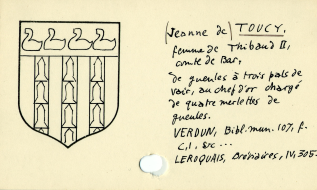 (Jeanne de) TOUCY,
femme de Thibaud II,
comte de Bar,
de gueules à trois pals de
vair, au chef d'or chargé
de quatre merlettes de
gueules.
VERDUN, Bibl. mun. 107, f.
c, 1, &c ...
LEROQUAIS, Bréviaires, IV, 305.